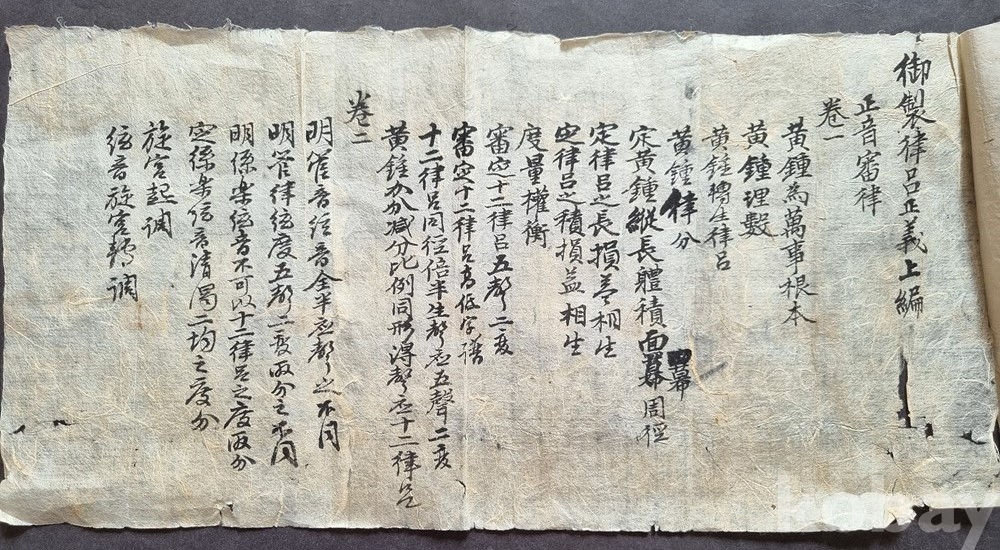 御製律呂正義上編
正音審律
卷一
黃鍾為萬事根本
黃鍾理數
黃鍾轉生律呂
黃鍾律分
定黃鍾縱長體積面冪周徑
冪
定律呂之長損益相生
定律呂之積損益相生
度量權衡
審定十二律呂五聲二变
審定十二律呂高低字譜
十二律呂同徑倍半生聲应五聲二变
黃鍾加分減分比例同形得聲应十二律呂
卷二
明管音絃音全半应聲之不同
明管律絃度五聲二变取分之不同
明絲樂絃音不可以十二律呂之度取分
定絲樂絃音清濁二均之度分
旋宮起调
絃音旋宮轉调
kobay